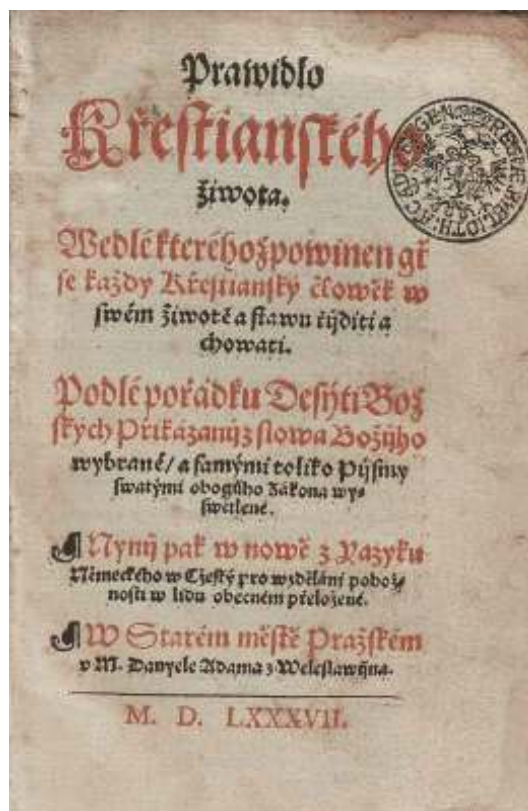 Prawidlo
Křestianského
života.
Wedlé kteréhož powinen gſt
ſe každy Křeſtianſký člowěk w
ſwém žiwotě a ſtawu říjditi a
chowati.
Podlé pořádku Deſýti Bož
ſkych Přikázanij z ſlowa Božijho
wybrané / a ſamými toliko Pijſmy
ſwatými obogijho Zákona wy⸗
ſwětlené.
¶ Nynij pak w nowě z Yazyku
Německého w Cžeſký pro wzdělání pobož⸗
noſti w lidu obecném přeložené.
¶ W Starém městě Pražſkém
v M. Danyele Adama z Weleſlawijna.
M. D. LXXXVII.